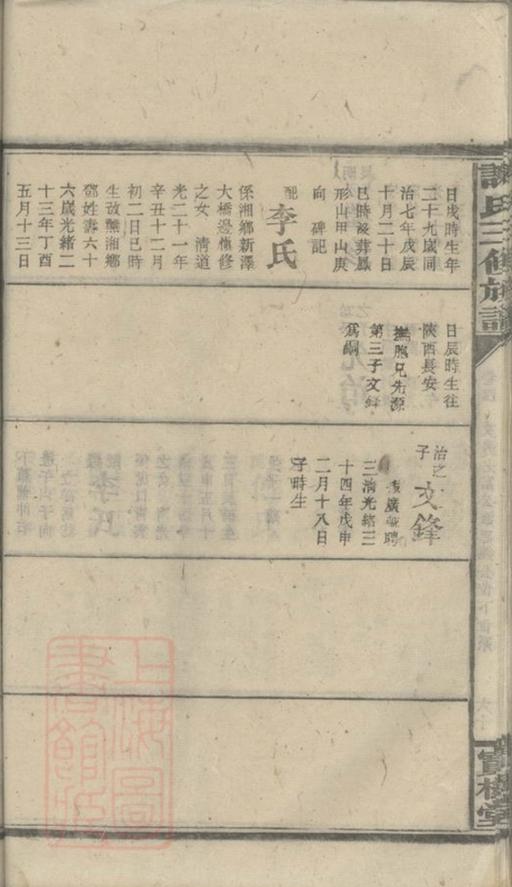 謝氏三修族譜
寶樹堂
日戌時生年
二十九歲同
治七年戊辰
十月二十日
巳時歿葬鳳
形山甲山庚
向 碑記
配李氏
係湘鄉新澤
大橋邊
之女 清道
光二十一年
辛丑十二月
初二日巳時
生改醮湘鄉
鄧姓壽六十
六歲光緒二
十三年丁酉
五月十三日
日辰時生往
陝西長安
撫胞兄先源
第三子文鋒
為嗣
治之子 文鋒
三清光緒三
十四年戊申
二月十八日
子時生
上海圖
書館藏